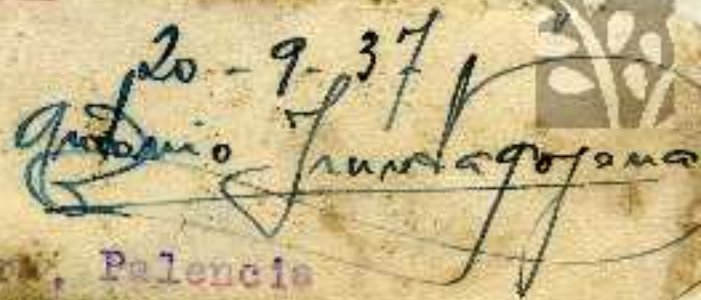 20-9-37
Antonio Irureta goyena
Palencia